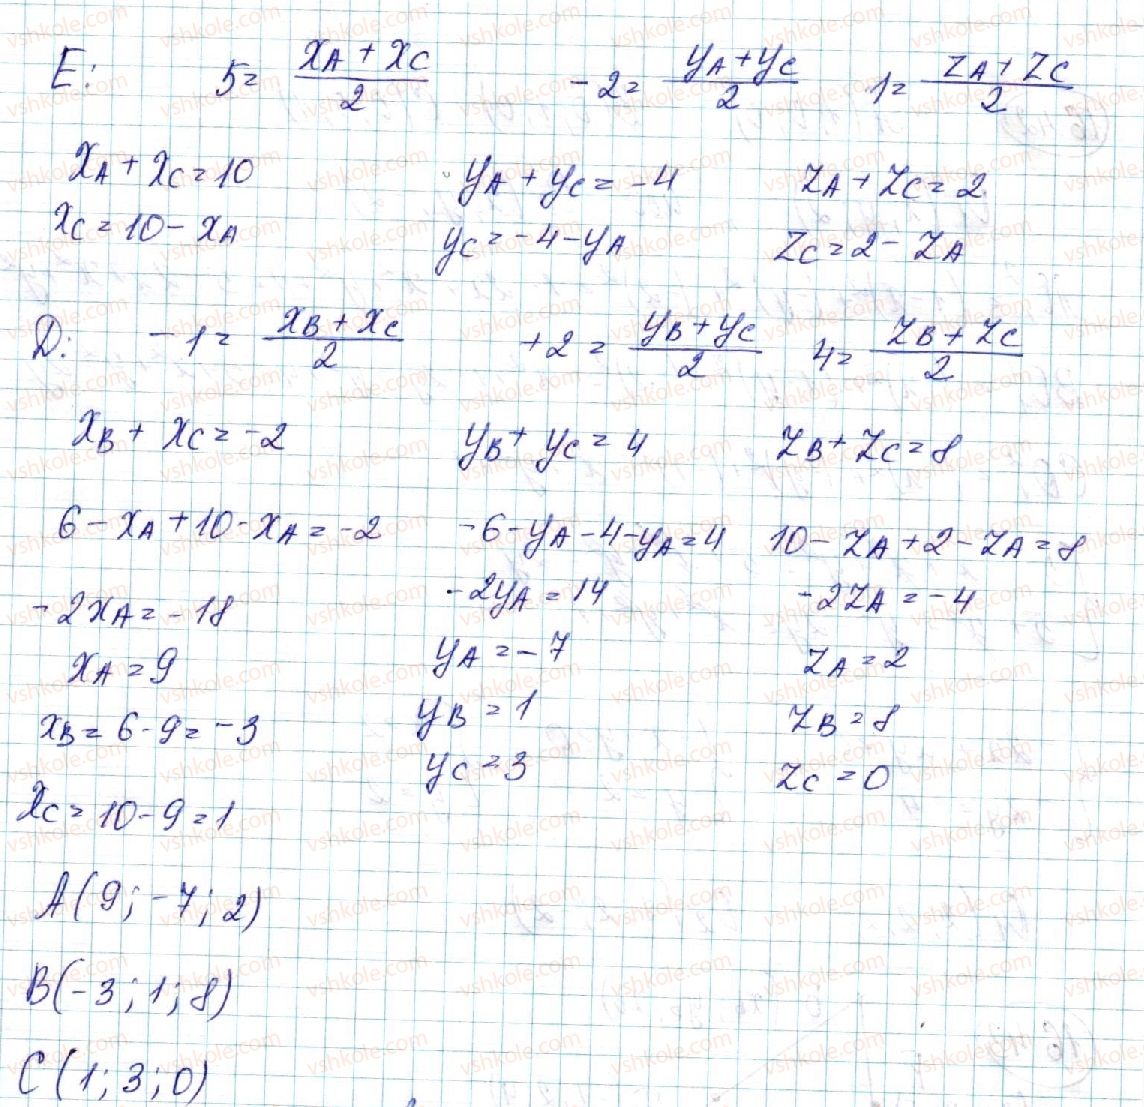 E: 5 = (xA + xC)/2   -2 = (yA + yC)/2   1 = (zA + zC)/2
xA + xC = 10   yA + yC = -4   zA + zC = 2
xC = 10 - xA   yC = -4 - yA   zC = 2 - zA
D: -1 = (xB + xC)/2   +2 = (yB + yC)/2   4 = (zB + zC)/2
xB + xC = -2   yB + yC = 4   zB + zC = 8
6 - xA + 10 - xA = -2   -6 - yA - 4 - yA = 4   10 - zA + 2 - zA = 8
-2xA = -18   -2yA = 14   -2zA = -4
xA = 9   yA = -7   zA = 2
xB = 6 - 9 = -3   yB = 1   zB = 8
xC = 10 - 9 = 1   yC = 3   zC = 0
A(9; -7; 2)
B(-3; 1; 8)
C(1; 3; 0)
vshkole.com